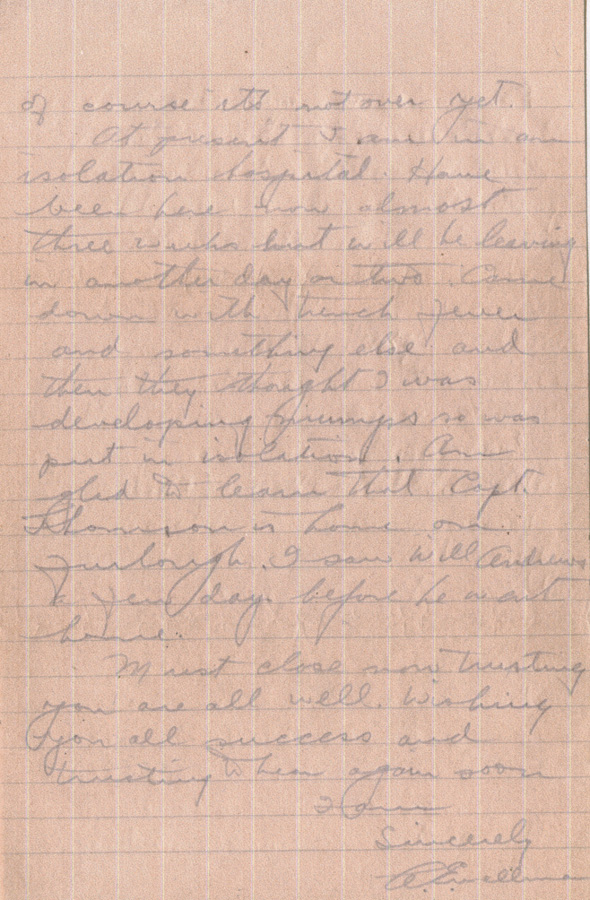 of course it's not over yet.
At present I am in an
isolation hospital. Have
been here now almost
three weeks but will be leaving
in another day or two. Came
down with trench fever
and something else and
then they thought I was
developing mumps so was
put in isolation. Am
glad to learn that Capt.
Thomson is home on
furlough. I saw Will Andrews
a few days before he went
home.
Must close now trusting
you are all well. Wishing
you all success and
trusting to hear again soon
I am
Sincerely